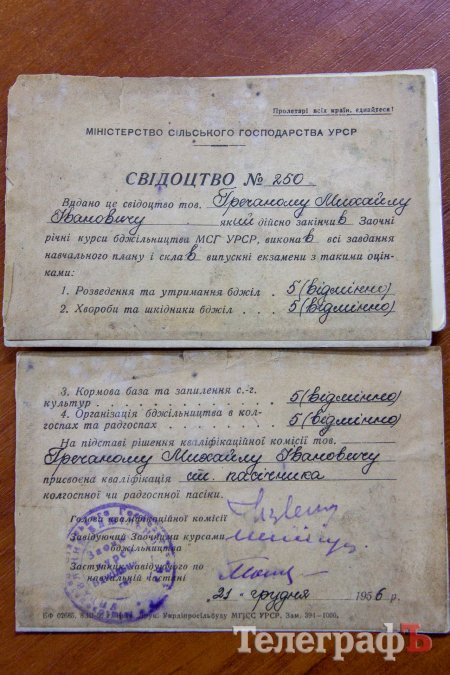 Пролетарі всіх країн, єднайтеся!
МІНІСТЕРСТВО СІЛЬСЬКОГО ГОСПОДАРСТВА УРСР
СВІДОЦТВО № 250
Видано це свідоцтво тов. Гречаному Михайлу
Івановичу який дійсно закінчив Заочні
річні курси бджільництва МСГ УРСР, виконав всі завдання
навчального плану і склав випускні екзамени з такими оцін-
ками:
1. Розведення та утримання бджіл . 5 (відмінно)
2. Хвороби та шкідники бджіл . . 5 (відмінно)
3. Кормова база та запилення с.-г.
культур . . . 5 (відмінно)
4. Організація бджільництва в кол-
госпах та радгоспах . . . 5 (відмінно)
На підставі рішення кваліфікаційної комісії тов.
Гречаному Михайлу Івановичу
присвоєна кваліфікація ст. пасічника
колгоспної чи радгоспної пасіки.
Голова кваліфікаційної комісії
Завідуючий Заочними курсами
бджільництва
Заступник завідуючого по
навчальній частині
"21" грудня 1956 р.
БФ 02665. Друк. Укрдіпросільбуду МГіСС УРСР. Зам. 394—1000.
ТелеграфЪ